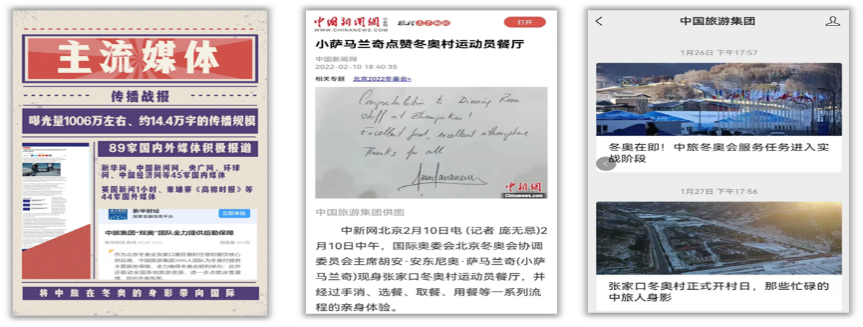 主流媒体
传播战报
曝光量1006万左右、约14.4万字的传播规模
89家国内外媒体积极报道
新华网、中国新闻网、央广网、环球
网、中国经济网等45家国内媒体
英国新闻1小时、柬埔寨《高棉时报》等
44家国外媒体
新华财经
立即体验
中旅集团“双奥”团队全力提供后勤保障
将中旅在冬奥的身影带向国际
中国新闻网
WWW.CHINANEWS.COM
打开
小萨马兰奇点赞冬奥村运动员餐厅
中国新闻网
2022-02-10 18:40:35
相关专题 北京2022冬奥会»
Congratulation to Dining Room
staff at Zhangjiakou!
Excellent food, excellent atmosphere
Thanks for all
中新网
Chinanews.com
中国旅游集团供图
中新网北京2月10日电 (记者 庞无忌)2
月10日中午，国际奥委会北京冬奥会协调
委员会主席胡安·安东尼奥·萨马兰奇(小萨
马兰奇)现身张家口冬奥村运动员餐厅，并
经过手消、选餐、取餐、用餐等一系列流
程的亲身体验。
中国旅游集团
1月26日 下午17:57
冬奥在即！中旅冬奥会服务任务进入实
战阶段
1月27日 下午17:56
张家口冬奥村正式开村日，那些忙碌的
中旅人身影